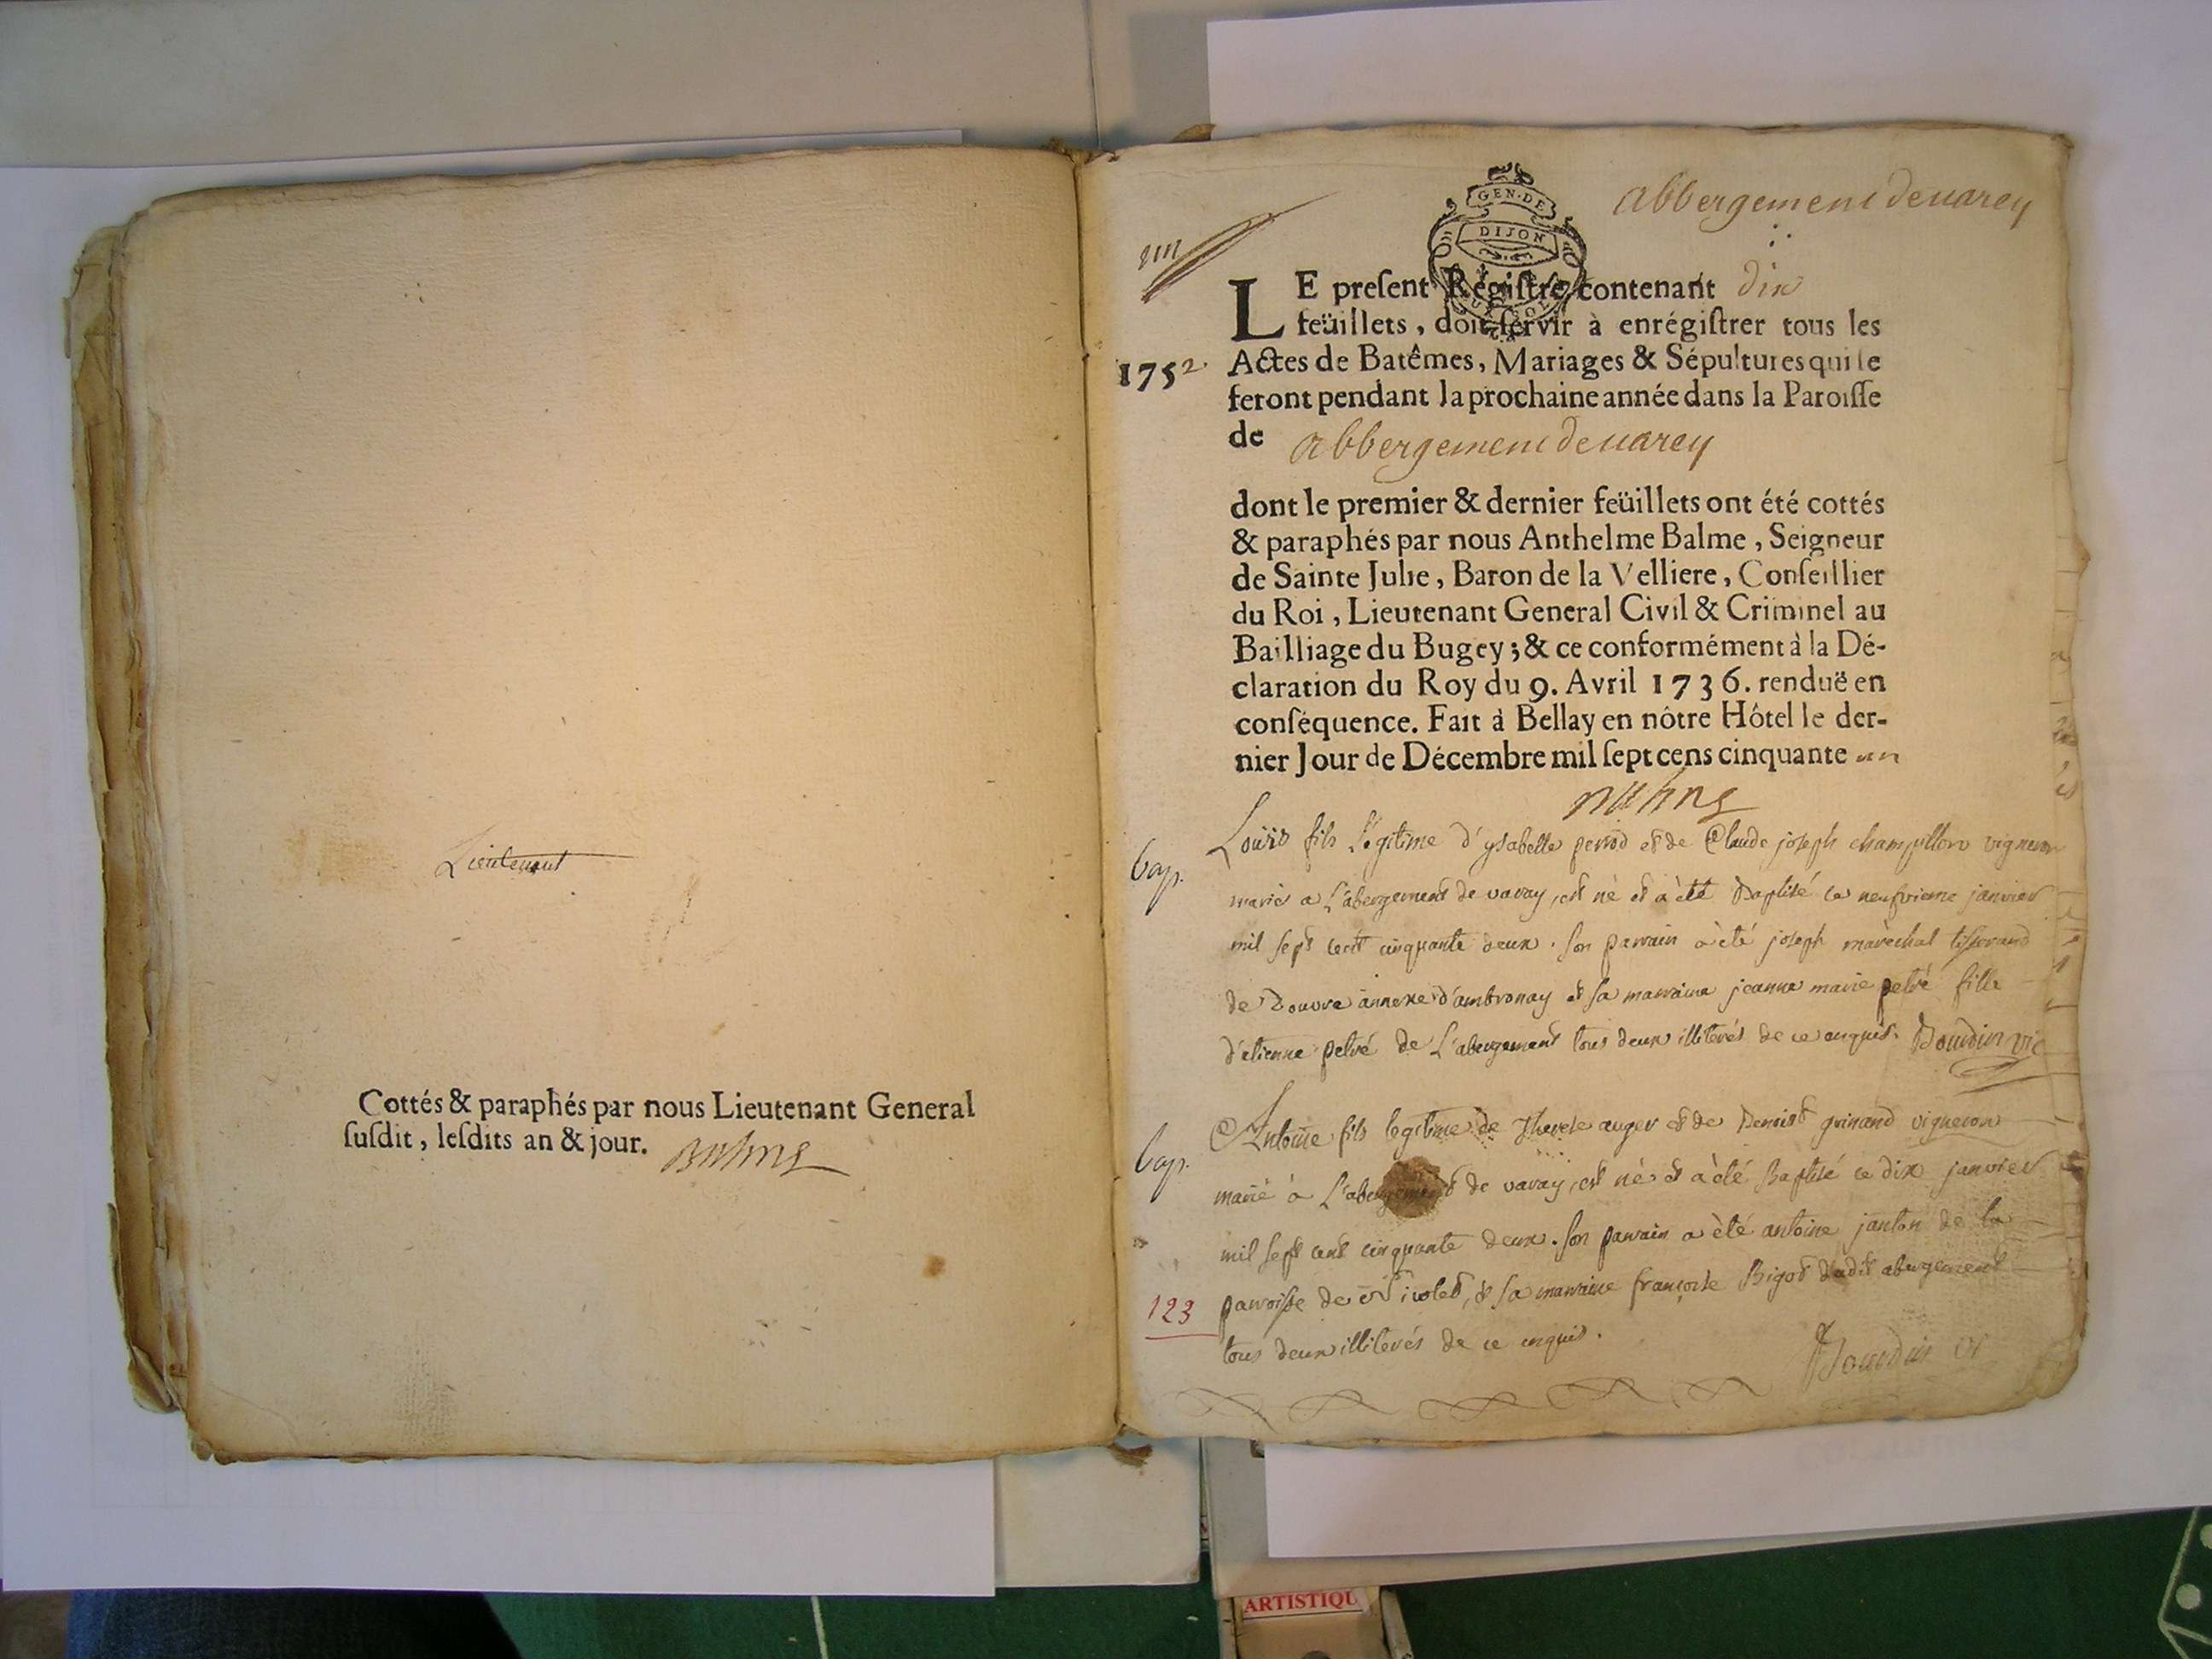 Lieutenant
Cottés & paraphés par nous Lieutenant General
susdit, lesdits an & jour.
abbergement devarey
GEN. DE
DIJON
un
LE present Régistre contenant dix
feüillets, doit servir à enrégistrer tous les
1752. Actes de Batêmes, Mariages & Sépultures qui se
feront pendant la prochaine année dans la Paroisse
de abbergement devarey
dont le premier & dernier feüillets ont été cottés
& paraphés par nous Anthelme Balme, Seigneur
de Sainte Julie, Baron de la Velliere, Conseillier
du Roi, Lieutenant General Civil & Criminel au
Bailliage du Bugey; & ce conformément à la Dé-
claration du Roy du 9. Avril 1736. renduë en
conséquence. Fait à Bellay en nôtre Hôtel le der-
nier Jour de Décembre mil sept cens cinquante un
bap. Louis fils Légitime d'ysabelle perrod et de Claude joseph champillon vigneron
marié a L'abergement de varay, est né et a été Baptisé le neufvieme janvier
mil sept cent cinquante deux. son parrain a été joseph maréchal tisserand
de Douvre annexe d'ambronay et sa marraine jeanne marie pelré fille
d'etienne pelré de L'abergement tous deux illiterés de ce enquis. Bourdin vic
bap. Antoine fils legitime de Therese auger et de Benoist guinand vigneron
marié à L'abergement de varay, est né et a été Baptisé le dix janvier
mil sept cent cinquante deux. son parrain a été antoine janton de la
123 parroisse de st nicolet, et sa marraine françoise Bigot dudit abergement
tous deux illiterés de ce enquis.
Bourdin vi
ARTISTIQU